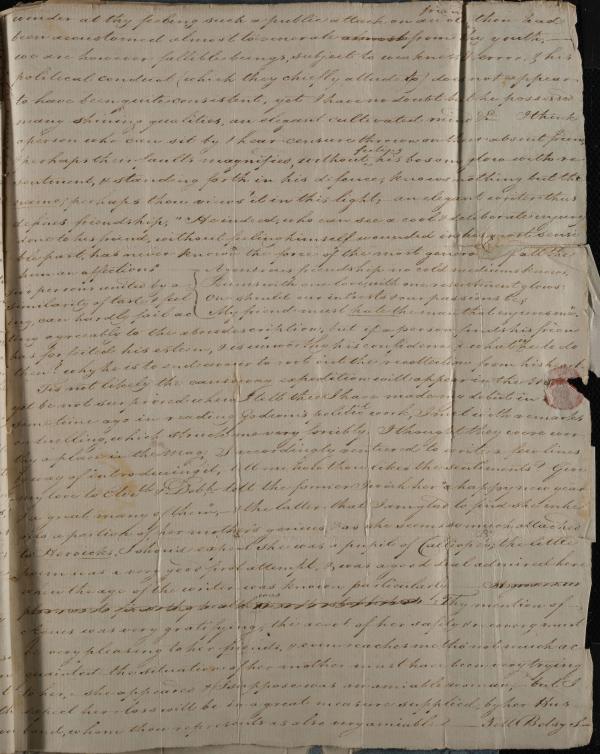 friend
wonder at thy feeling such a public attack on an old thou had
been accustomed almost to venerate from thy youth,
we are however fallible beings, subject to weakness & error, & his
political conduct (which they chiefly allude to) does not appear
to have been quite consistent, yet I have no doubt but he possesses
many shining qualities, an elegant cultivated mind &c I think
a person who can sit by & hear censure thrown on their absent friend
perhaps their faults magnified, without feeling his bosom glow with re-
sentment, & standing forth in his defence, knows nothing but the
name; perhaps thou views it in this light, an elegant writer thus
defines friendship, "He indeed, who can see a cool & deliberate injury
done to his friend, without feeling himself wounded in the most sensi
ble part, has never known the force of the most generous of all the
human affections"
A generous friendship no cold mediums knows,
Burns with one love, with one resentment glows:
One should our interests & our passions be;
My friend must hate the man that injures me.
two persons united by a
similarity of taste & feel
ing, can hardly fail of
ting agreeably to the above description, but if a person finds his friend
has forfeited his esteem, & is unworthy his confidence, what he to do
then? why he is to endeavor to root out the recollection from his heart
Tis not likely the causeway expedition will appear in the
yet be not surprised when I tell thee I have made my debut in
some time ago in reading Godman's work, I met with remarks
on duelling, which struck me very forcibly, I thought they were wor
thy a place in the Mag, & accordingly ventured to write a few lines
by way of introducing it, tell me how thou likes the sentiments? Give
my love to & Deb, tell the former I wish her a happy new year
& a great many of them, & the latter, that I am glad to find she inhe-
rits a particle of her mother's genius as she seems so much attached
to Heroicks, I should expect she was a pupil of Calliope's, the little
poem was a very good first attempt, & was a good deal admired here
when the age of the writer was known particularly
Thy mention of
was very gratifying, the acct of her safety & recovery must
be very pleasing to her friends, even reaches me tho' not much ac
quainted, the situation of her mother must have been very trying
to her, she appeared & I suppose was an amiable woman, but I
expect her loss will be in a great measure supplied by her Hus
band, whom thou represents as also very amiable — Tell Betsy